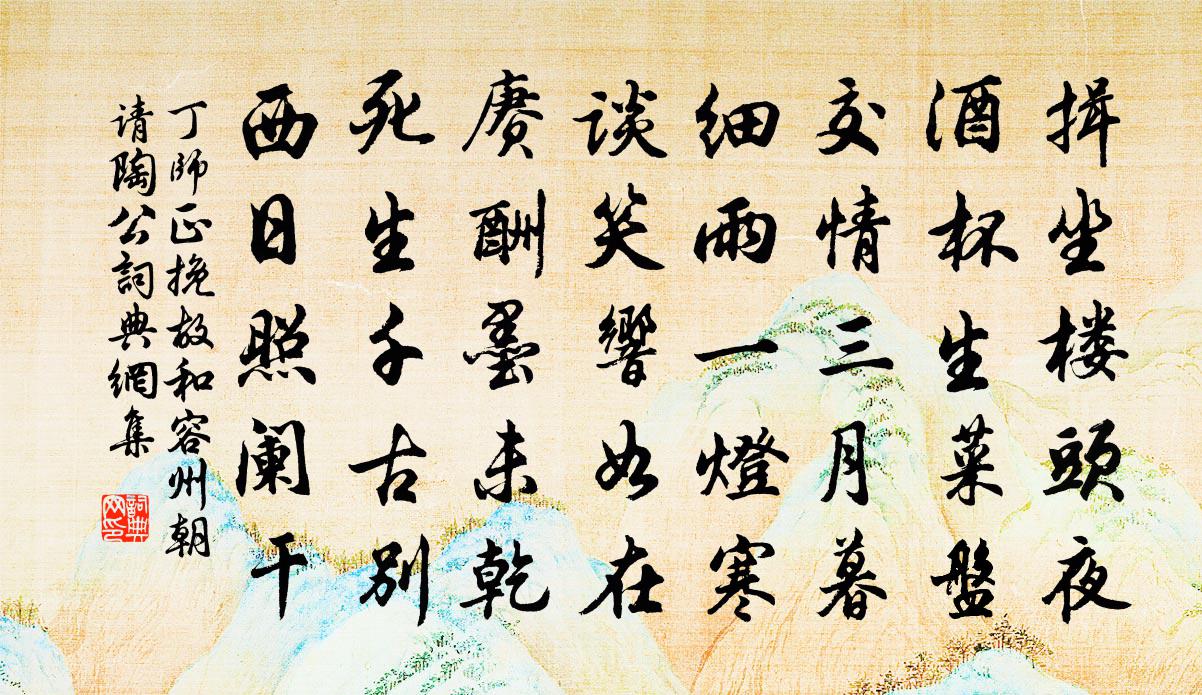 揖坐楼頭夜
酒杯生菜盤
交情三月暮
細雨一燈寒
谈笑響如在
赓酬墨未乾
死生千古别
西日照阑干
丁師正挽故和容州朝
请陶公詞典網集
詞典網印